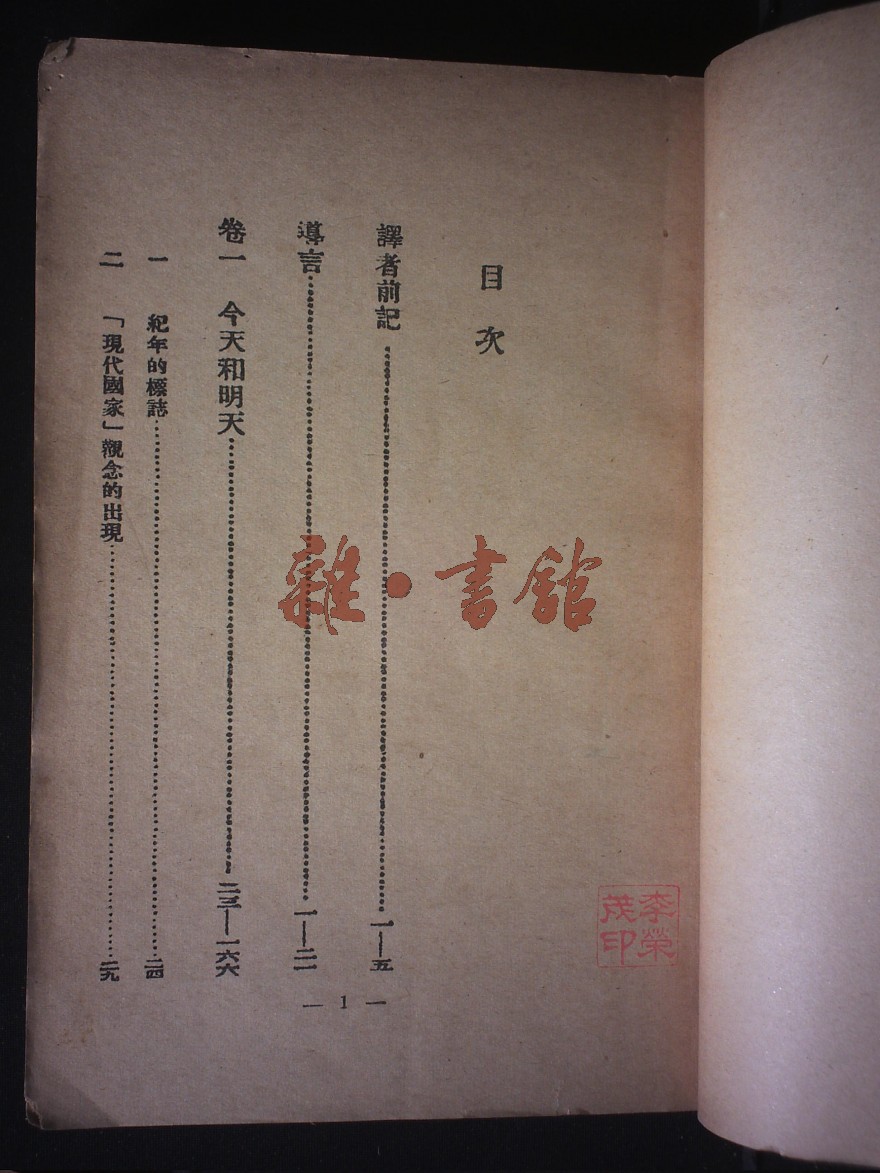 目次
譯者前記………一——五
導言………一—二一
卷一　今天和明天………二三——一六六
一　紀年的標誌………二四
二　「現代國家」觀念的出現………二九
— 1 —
雜·書館
李榮茂印